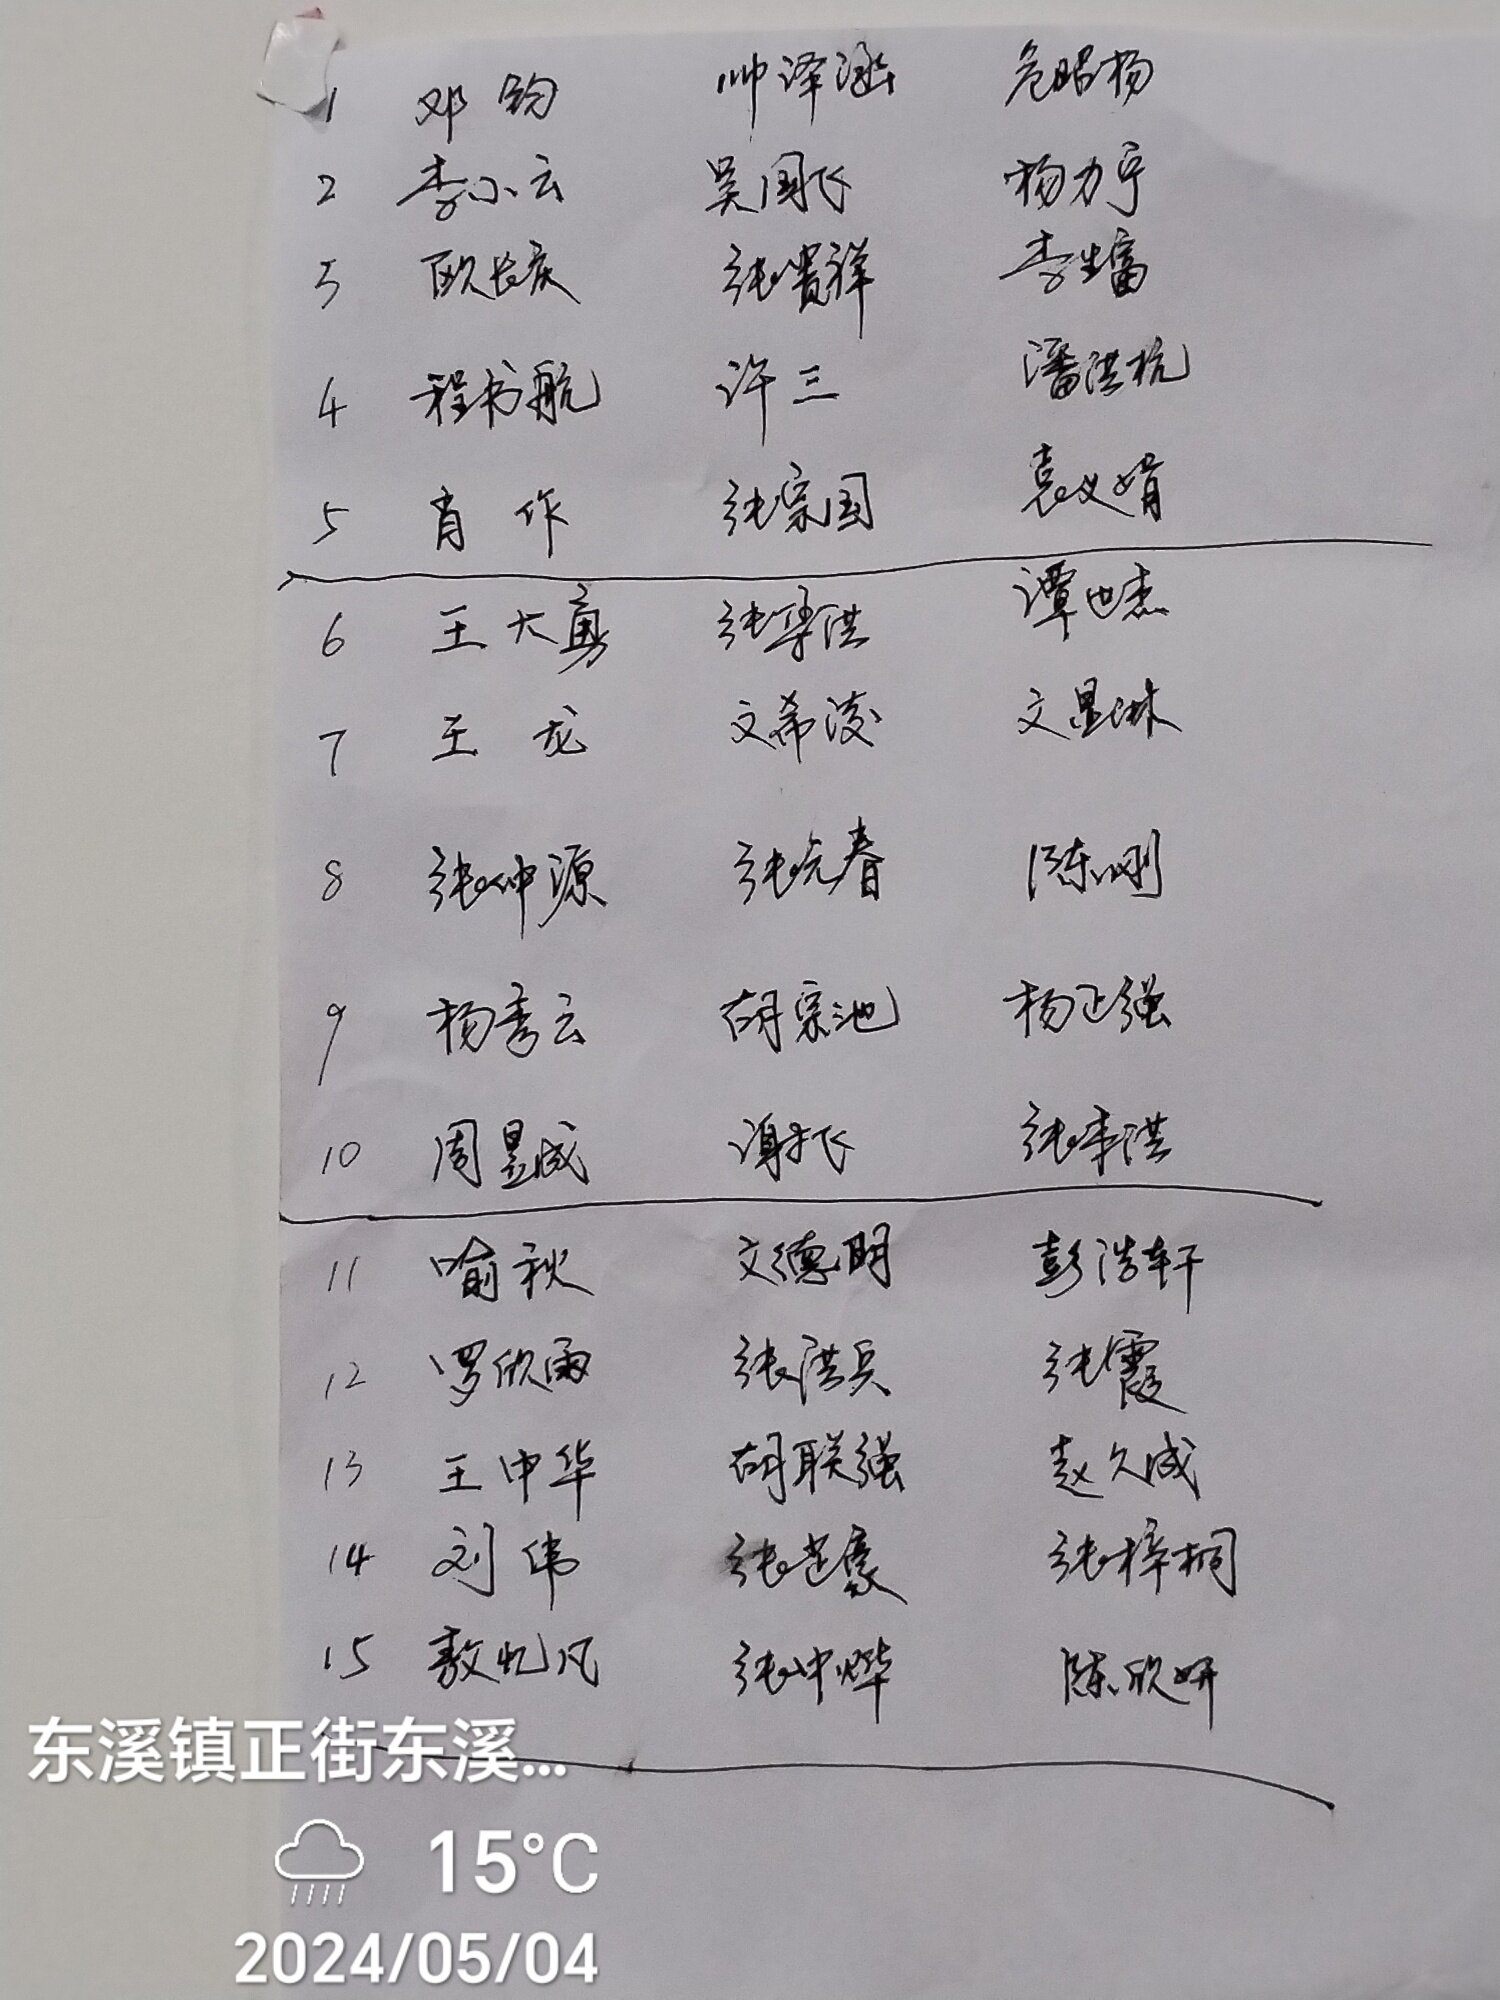 1 邓钧 帅泽涵 危昭杨
2 李小云 吴国飞 杨力宁
3 欧长庆 张贵祥 李生富
4 程书航 许三 潘洪杭
5 肖作 张宗国 袁义娟
6 王大勇 张举洪 谭世杰
7 王龙 文希凌 文显琳
8 张仲源 张元春 陈刚
9 杨秀云 胡宗池 杨正强
10 周昱成 谭飞 张丰洪
11 喻秋 文德明 彭浩轩
12 罗欣雨 张洪兵 张霞
13 王中华 胡联强 赵久成
14 刘伟 张芷豪 张梓桐
15 敖忆凡 张中烨 陈欣妍
东溪镇正街东溪...
15°C
2024/05/04